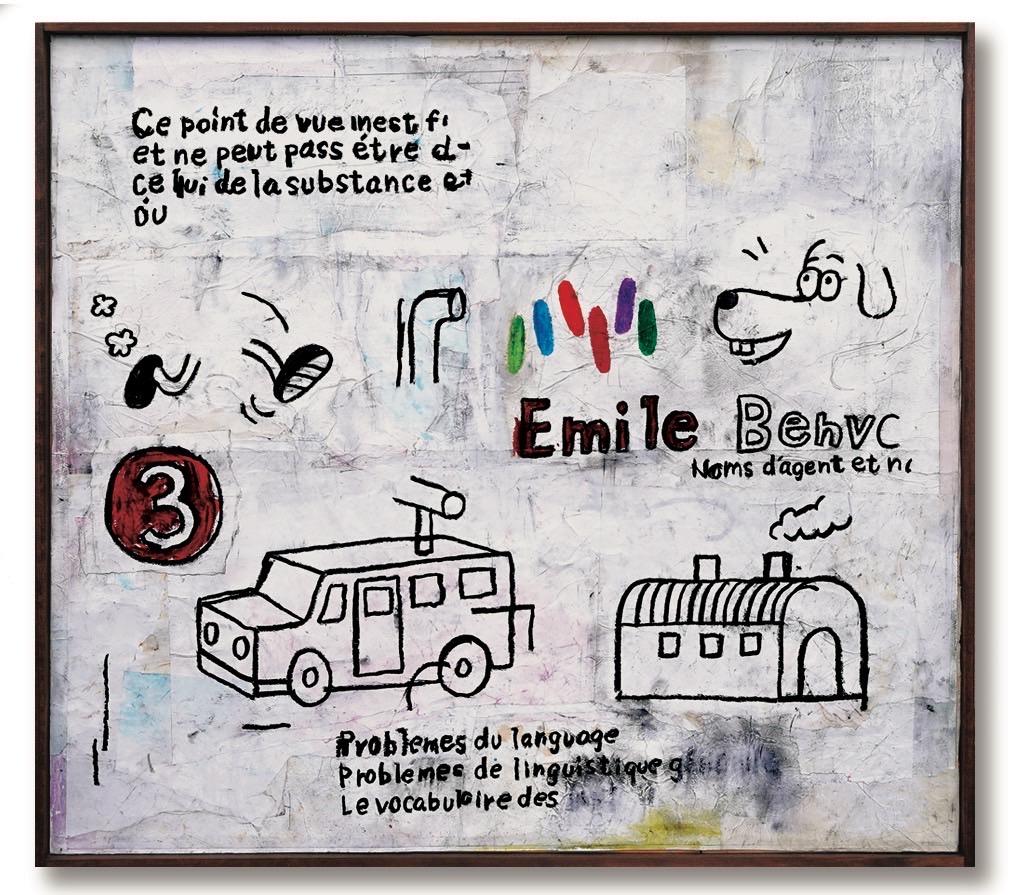 Ce point de vue inest fi
et ne peut pass étre d-
ce lui de la substance et
ou
Emile Benvc
Noms d'agent et n
3
Problemes du language
Problemes de linguistique g
Le vocabulaire des